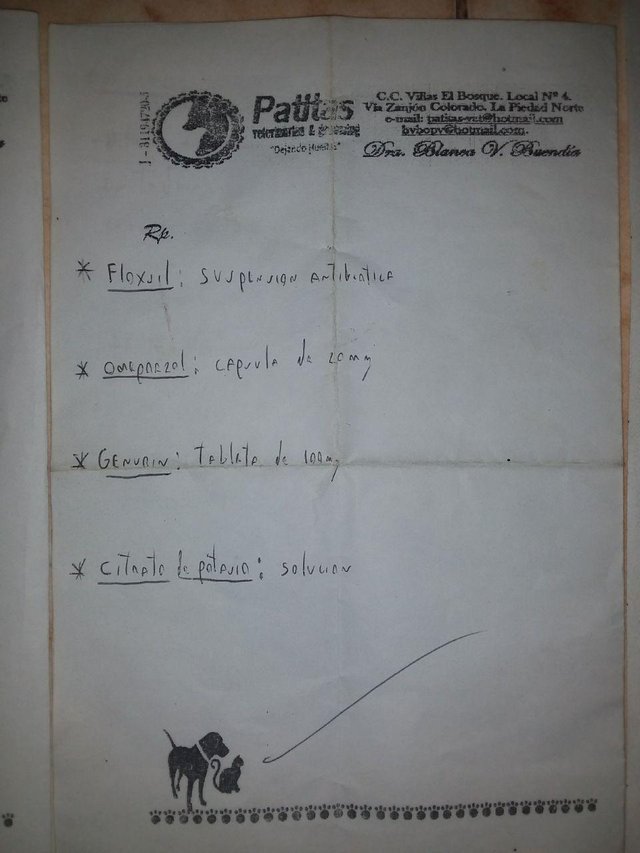 J-31194720-5
Patitas
veterinarias & grooming
"Dejando Huellas"
C.C. Villas El Bosque. Local Nº 4.
Vía Zanjón Colorado. La Piedad Norte
e-mail: patitas-vet@hotmail.com
bvbopv@hotmail.com.
Dra. Blanca V. Buendia
Rp.
* Floxsil: suspension antibiotica
* Omeprazol: capsula de 20mg
* Genurin: tableta de 100mg
* Citrato de potasio: solucion